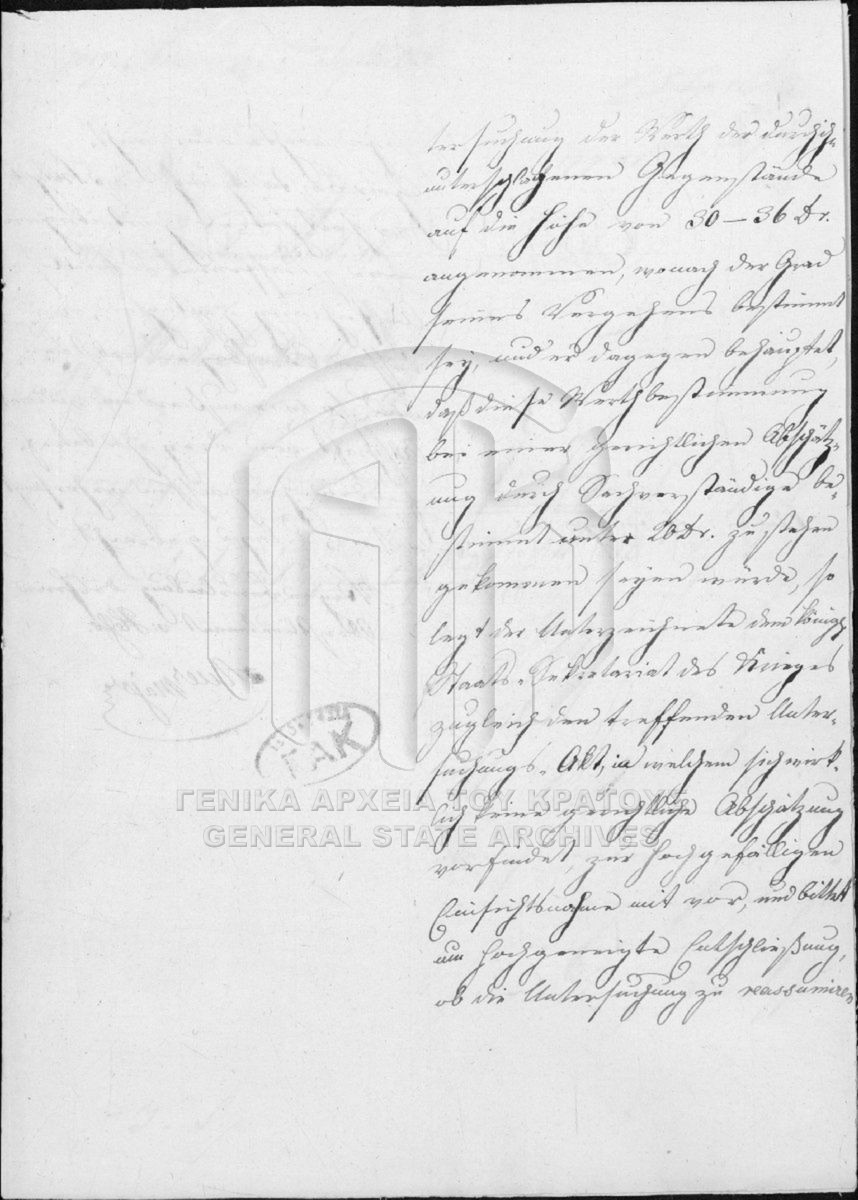 tersuchung der Werth der durch ihn
unterschlagenen Gegenstände
auf die Höhe von 30–36 Dr.
angenommen, wonach der Grad
seines Vergehens bestimmt
sey, und er dagegen behauptet,
daß diese Werthbestimmung
bei einer gerichtlichen Abschätz-
ung durch Sachverständige be-
stimmt unter 20 Dr. zu stehen
gekommen seyn würde, so
legt der Unterzeichnete dem König
Staats-Sekretariat des Krieges
zugleich den treffenden Unter-
suchungs-Akt, in welchem sich wirk-
lich keine gerichtliche Abschätzung
vorfindet, zur hochgefälligen
Einsichtsnahme mit vor, und bittet
um hochgeneigte Entschließung,
ob die Untersuchung zu reassumiren
ΓΑΚ
ΓΕΝΙΚΑ ΑΡΧΕΙΑ ΤΟΥ ΚΡΑΤΟΥΣ
GENERAL STATE ARCHIVES